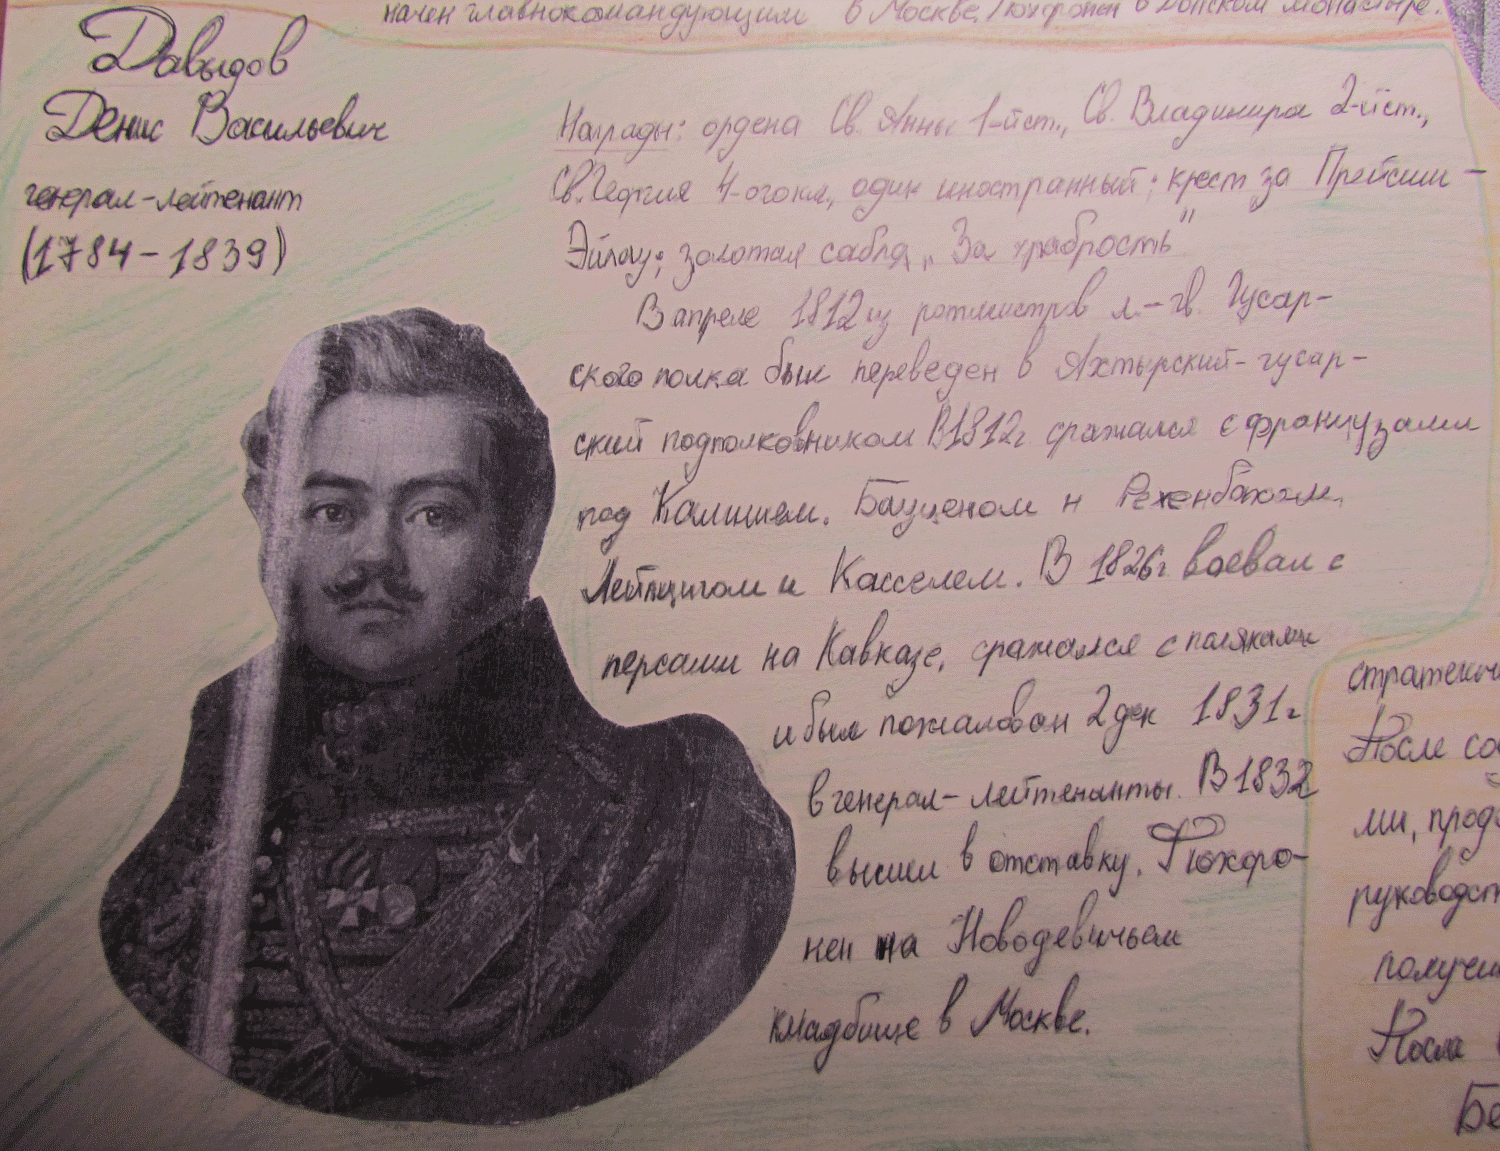 начен главнокомандующим в Москве. Похоронен в Донском монастыре.
Давыдов
Денис Васильевич
генерал-лейтенант
(1784-1839)
Награды: ордена Св. Анны 1-йст., Св. Владимира 2-йст.,
Св. Георгия 4-огокл, один иностранный; крест за Прейсиш-
Эйлау; золотая сабля „За храбрость"
В апреле 1812 из ротмистров л.-гв. Гусар-
ского полка был переведен в Ахтырский-гусар-
ский подполковником В1812г сражался с французами
под Калишем. Бауценом и Рехенбахом,
Лейпцигом и Касселем. В 1826г воевал с
персами на Кавказе, сражался с поляками
и был пожалован 2 дек 1831г
в генерал-лейтенанты. В 1832
вышел в отставку. Похоро-
нен на Новодевичьем
кладбище в Москве.
После со
ми, прод
руководст
После
Бе